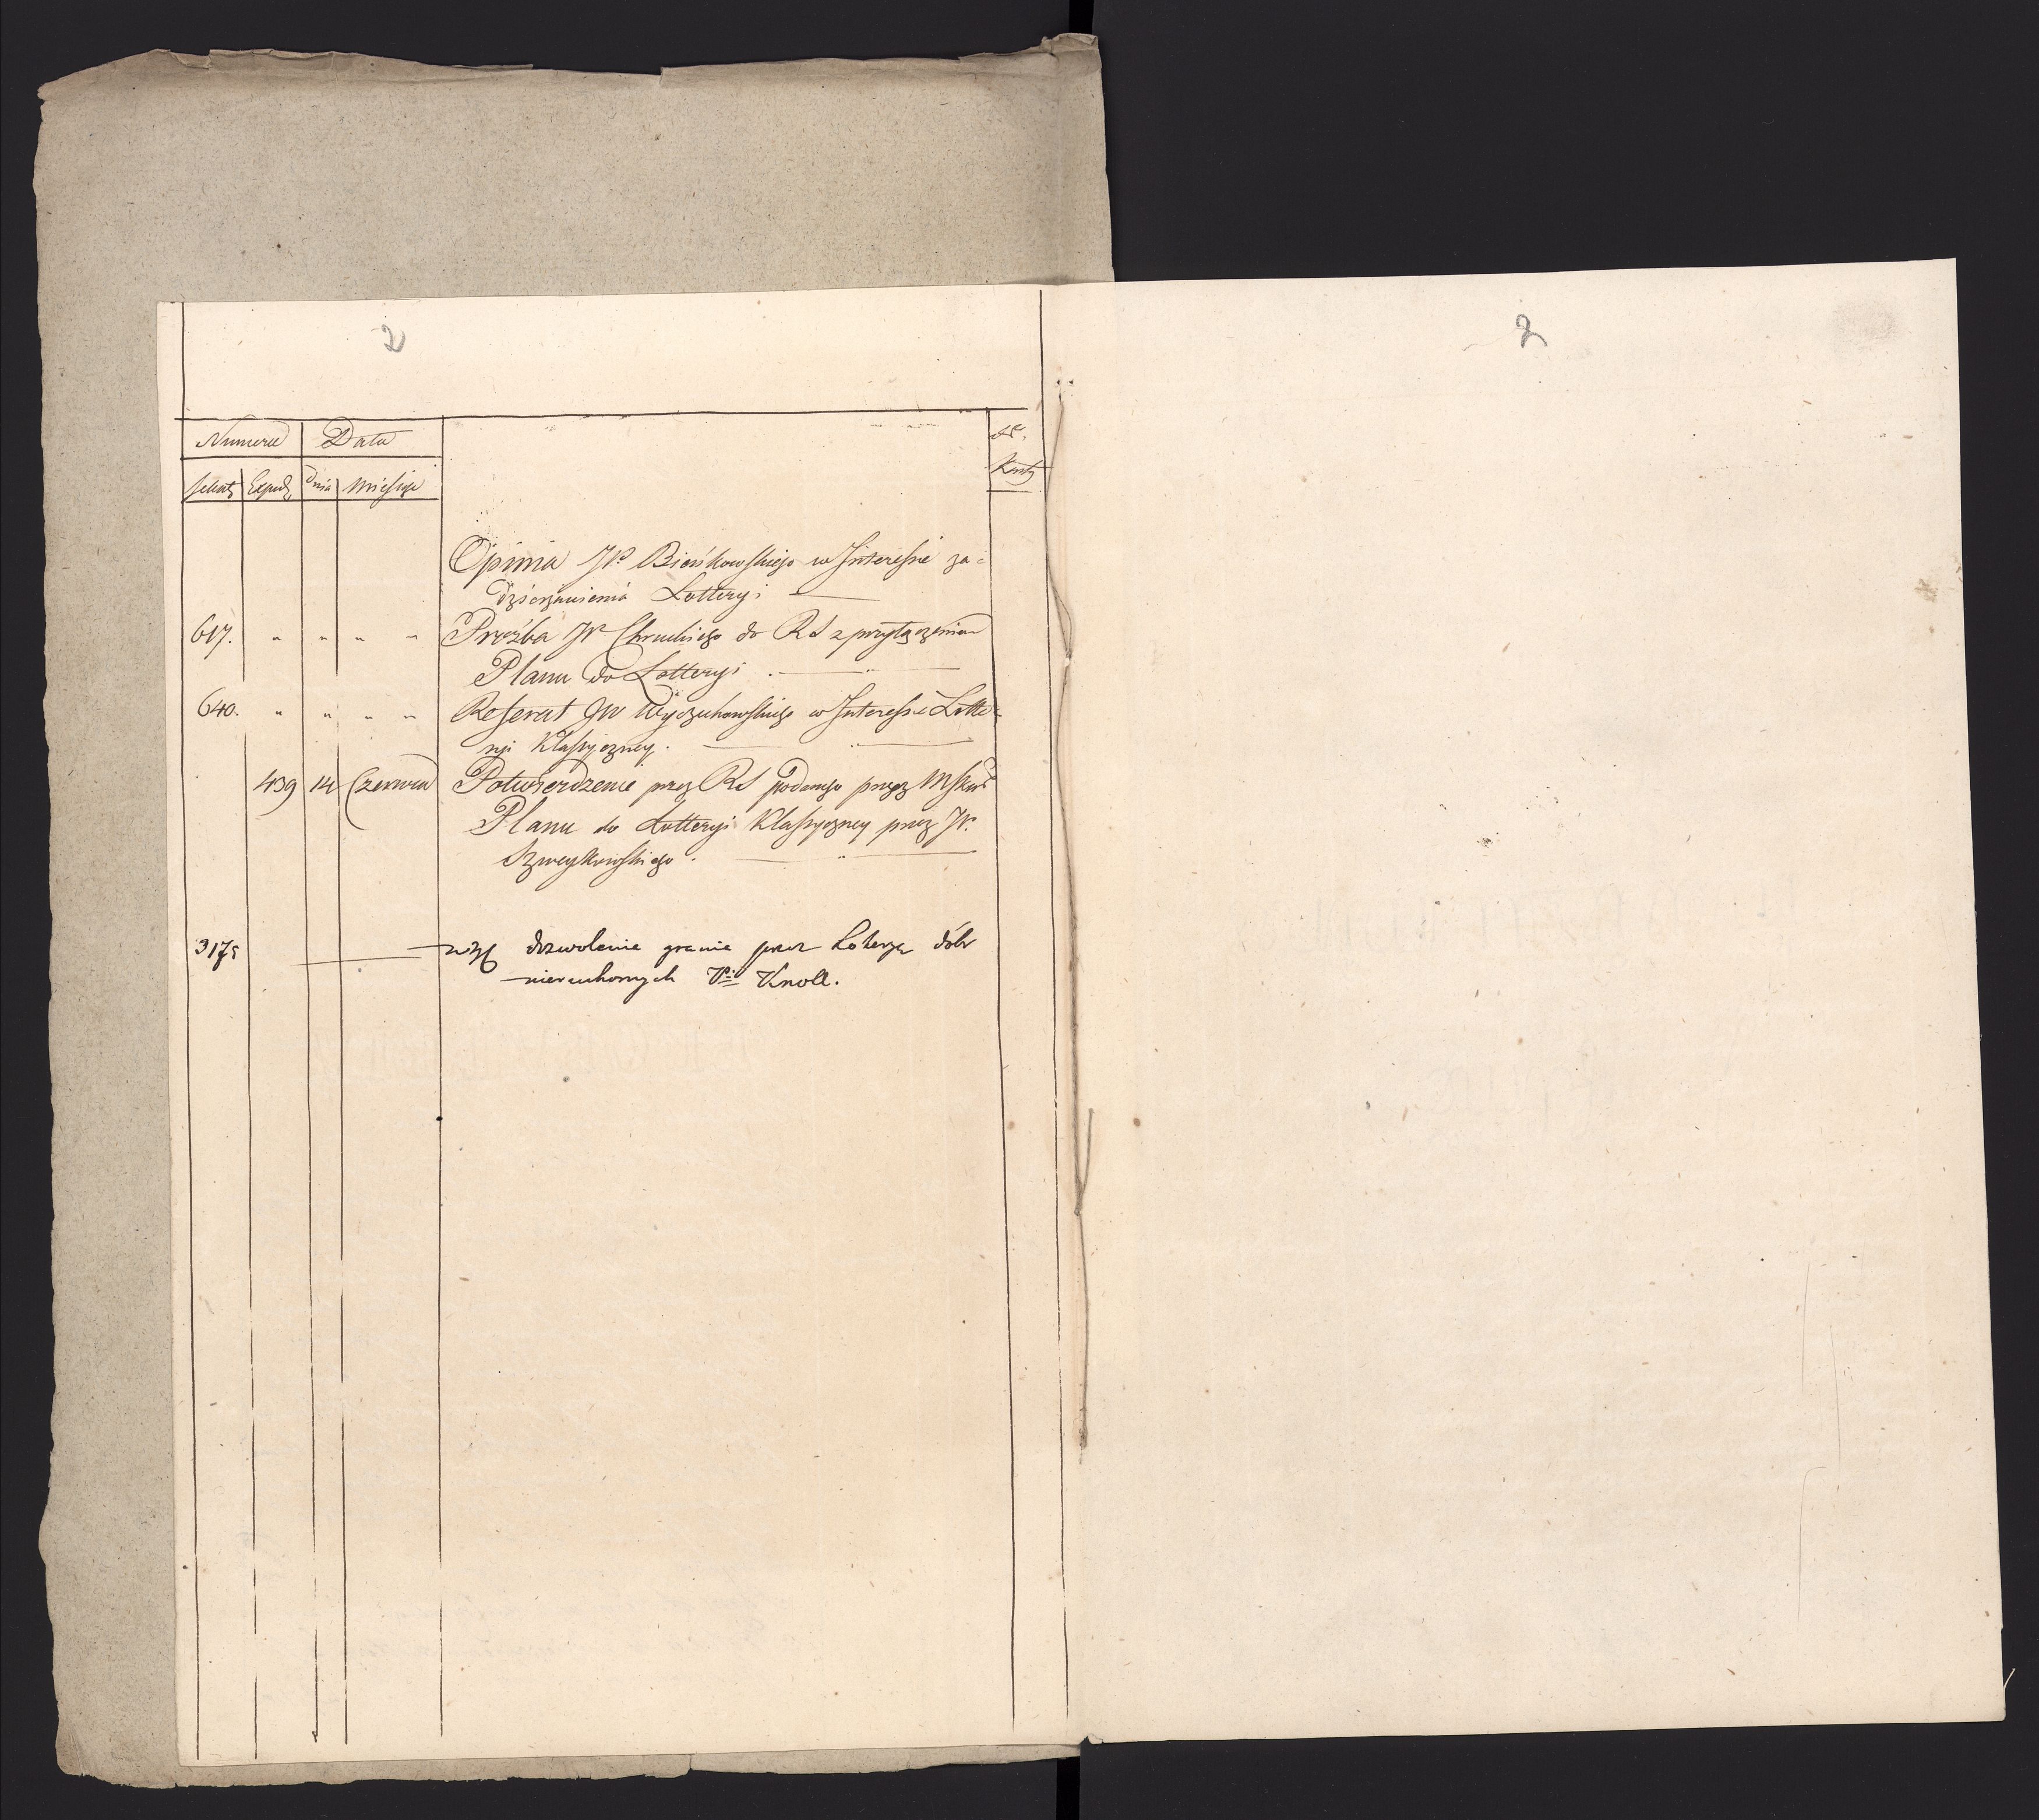 2
2
Numera Data Nr.
Expedy. dnia Miesiąc Karty
Opinia JP. Bieńkowskiego w Interessie za=
dzierżawienia Lotteryi
617. " " " " Prożba JP. Chruckiego do RS z przyłączeniem
Planu do Lotteryi
640. " " " " Referat JW Wyczechowskiego w Interessie Lotte=
ryi Klassyczney.
439 14 Czerwca Potwierdzenie przez RS podanego przez
Planu do Lotteryi Klassyczney przez JP.
Szweykowskiego.
3175 dozwolenia grania przez Loterye dóbr
nieruchomych Knoll.